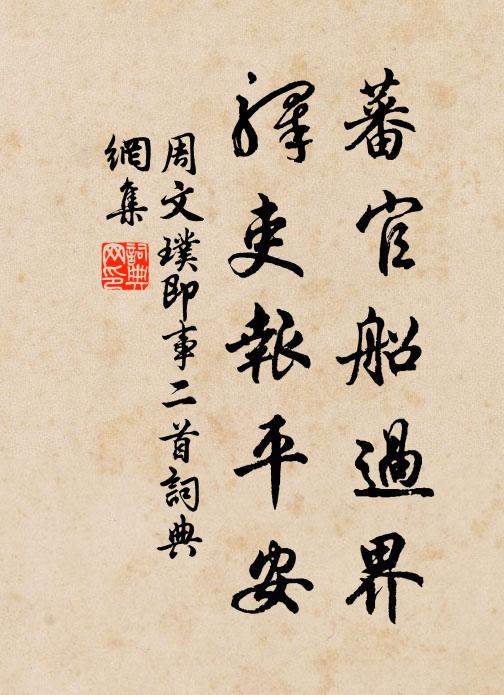 蕃官船過界
驛吏報平安
周文璞即事二首詞典
網集
詞典
网印